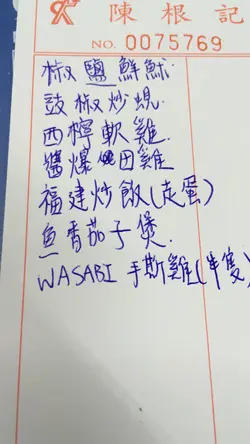 陳根記
NO. 0075769
椒鹽鮮魷
豉椒炒蜆
西檸軟雞
醬爆田雞
福建炒飯(走蛋)
魚香茄子煲
WASABI 手撕雞(半隻)